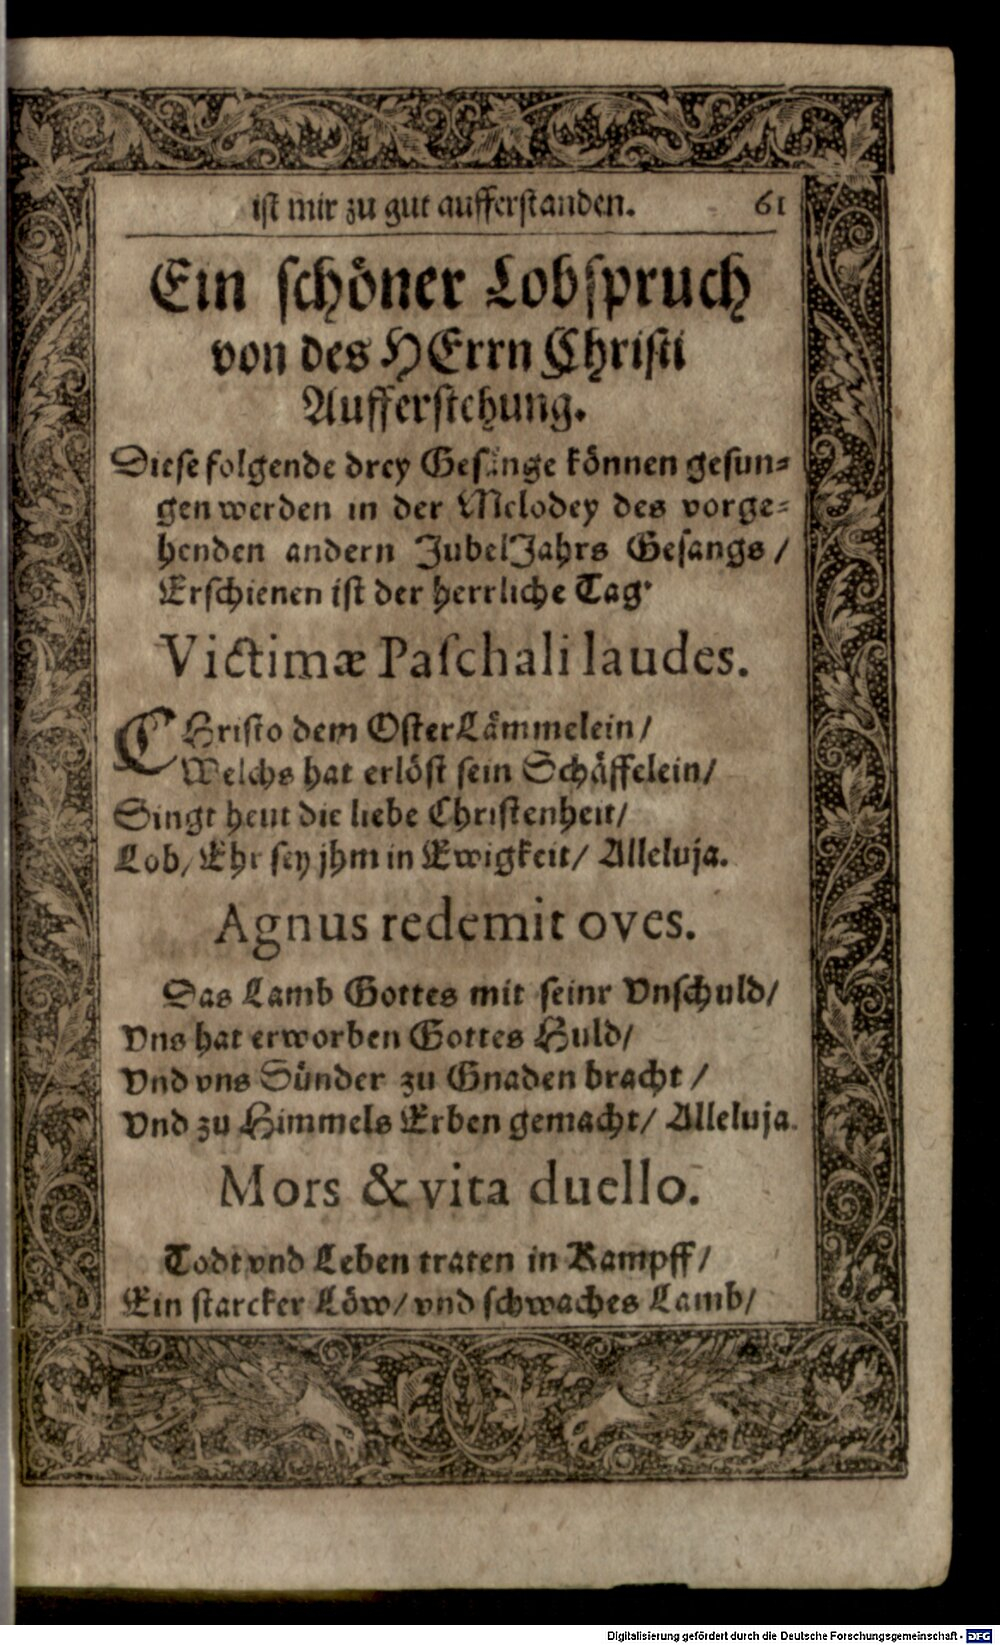 ist mir zu gut aufferstanden. 61
Ein schöner Lobspruch
von des HErrn Christi
Aufferstehung.
Diese folgende drey Gesänge können gesun⸗
gen werden in der Melodey des vorge⸗
henden andern JubelJahrs Gesangs /
Erschienen ist der herrliche Tag.
Victimæ Paſchali laudes.
CHristo dem OsterLämmelein/
Welchs hat erlöst sein Schäffelein/
Singt heut die liebe Christenheit/
Lob/ Ehr sey jhm in Ewigkeit/ Alleluja.
Agnus redemit oves.
Das Lamb Gottes mit seinr Vnschuld/
Vns hat erworben Gottes Huld/
Vnd vns Sünder zu Gnaden bracht /
Vnd zu Himmels Erben gemacht/ Alleluja.
Mors & vita duello.
Todt vnd Leben traten in Kampff/
Ein starcker Löw/ vnd schwaches Lamb/
Digitalisierung gefördert durch die Deutsche Forschungsgemeinschaft - DFG